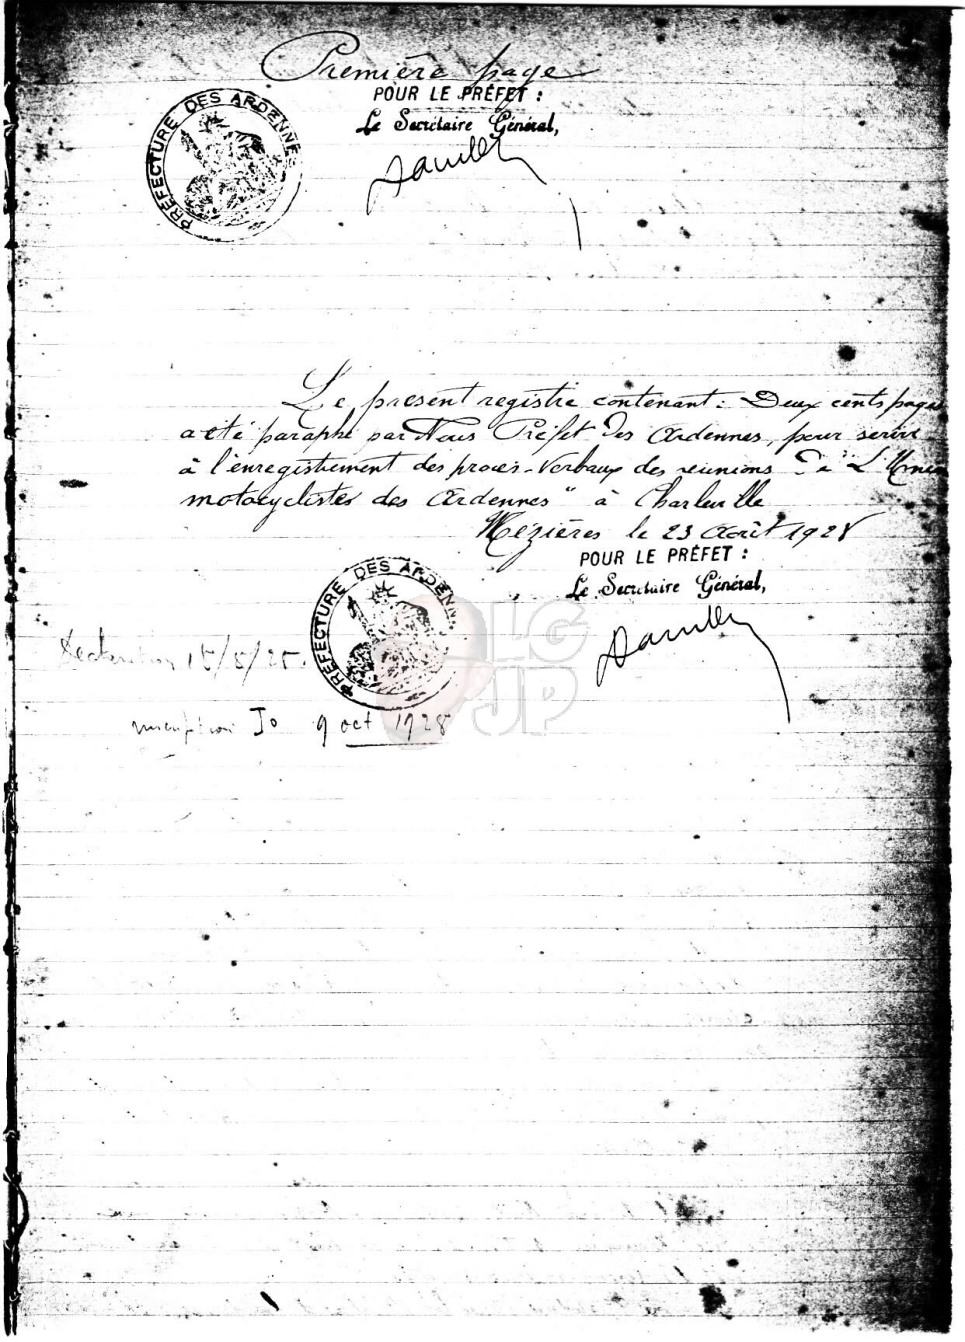 Première page
POUR LE PRÉFET :
Le Secrétaire Général,
PRÉFECTURE DES ARDENNES
Le présent registre contenant : Deux cents pages
a été paraphé par Nous Préfet des Ardennes, pour servir
à l'enregistrement des procès-verbaux des réunions de "L'Union
motocycliste des Ardennes" à Charleville
Mézières le 23 Août 1928
POUR LE PRÉFET :
Le Secrétaire Général,
PRÉFECTURE DES ARDENN
LG
JP
Déclaration 15/5/25.
inscription Jo 9 oct 1928